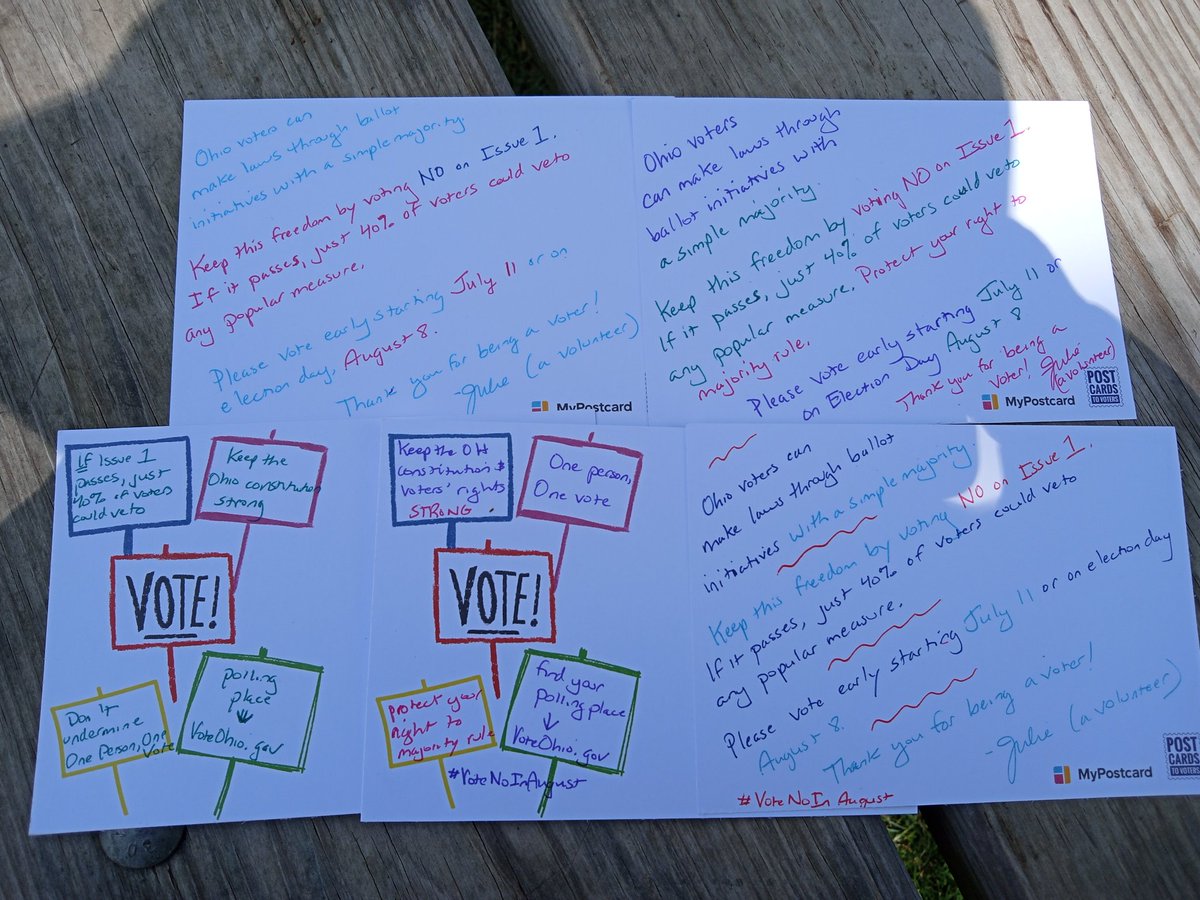 Ohio voters can
make laws through ballot
initiatives with a simple majority.
Keep this freedom by voting NO on Issue 1.
If it passes, just 40% of voters could veto
any popular measure.
Please vote early starting July 11 or on
election day, August 8.
Thank you for being a voter!
-Julie (a volunteer)
MyPostcard
Ohio voters
can make laws through
ballot initiatives with
a simple majority.
Keep this freedom by voting NO on Issue 1.
If it passes, just 40% of voters could veto
any popular measure. Protect your right to
majority rule.
Please vote early starting July 11 or
on Election Day August 8
Thank you for being a
voter! Julie
(a volunteer)
MyPostcard
POST
CARDS
TO VOTERS
If Issue 1
passes, just
40% of voters
could veto
Keep the
Ohio constitution
strong
VOTE!
Don't
undermine
One Person, One
Vote
polling
place
VoteOhio.gov
Keep the OH
constitution &
voters' rights
STRONG
One person,
One vote
VOTE!
Protect your
right to
majority rule
find your
polling place
VoteOhio.gov
#VoteNoInAugust
Ohio voters can
make laws through ballot
initiatives with a simple majority
Keep this freedom by voting NO on Issue 1.
If it passes, just 40% of voters could veto
any popular measure.
Please vote early starting July 11 or on election day
August 8.
Thank you for being a voter!
-Julie (a volunteer)
MyPostcard
POST
CARDS
TO VOTERS
#VoteNoInAugust